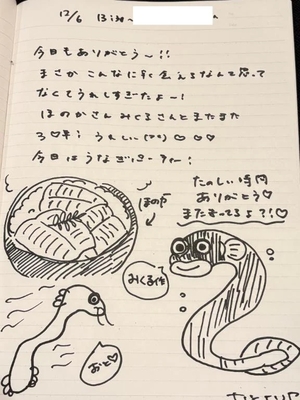 12/6
今日もありがとう〜!!
まさかこんなに早く会えるなんて思って
なくてうれしすぎたよー!
ほのかさんみくるさんとまたまた
3♡早! うれしい(^^)♡♡♡
今日はうなぎパーティー!
たのしい時間
ありがとう♡
またまってるよ?!♡
ほのか
みくる作
おと♡